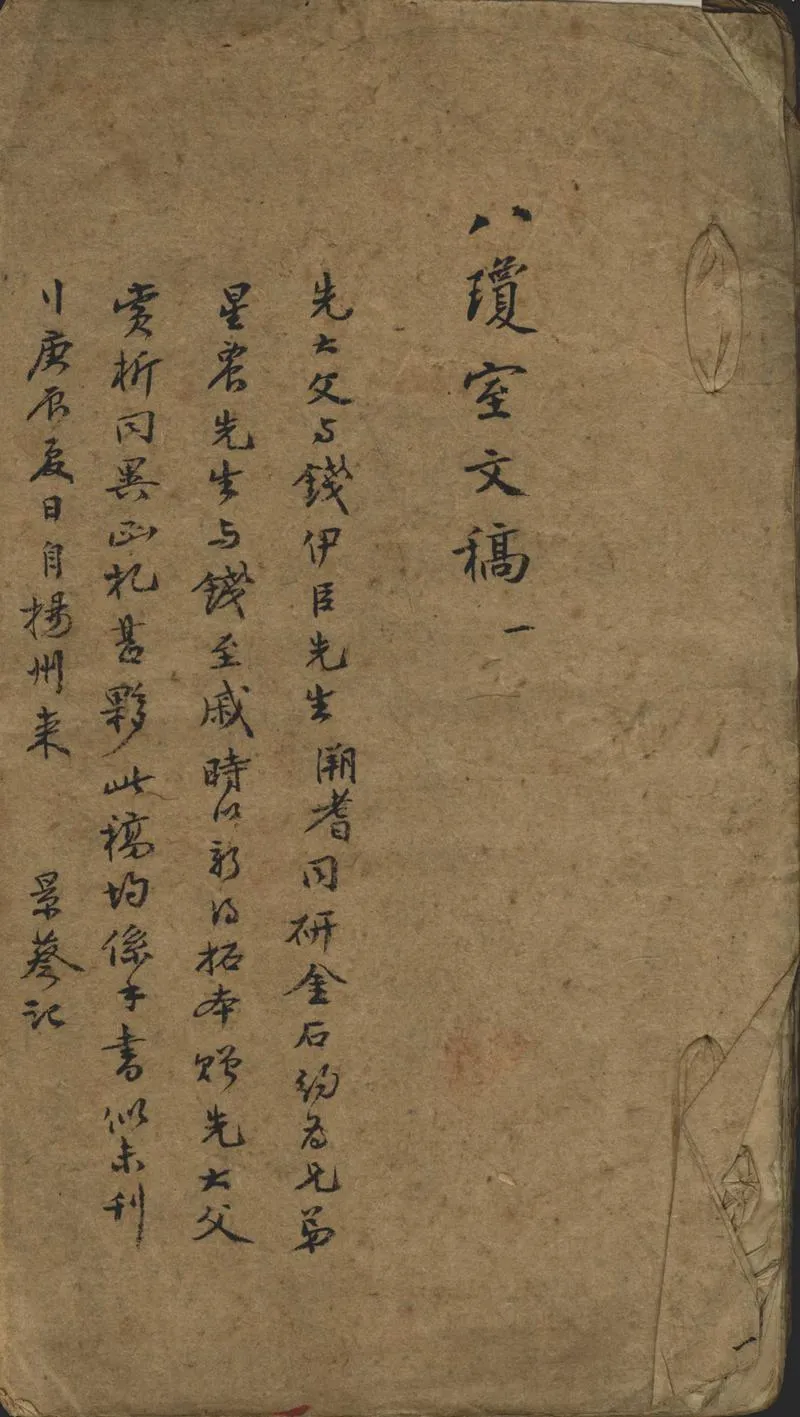 八瓊室文稿 一
先大父与錢伊臣先生渊耆同研金石約为兄弟
星農先生与錢至戚時以新得拓本贈先大父
赏析同異函札甚夥此稿均係手書似未刊
庚辰夏日自揚州来 景蔡记
一